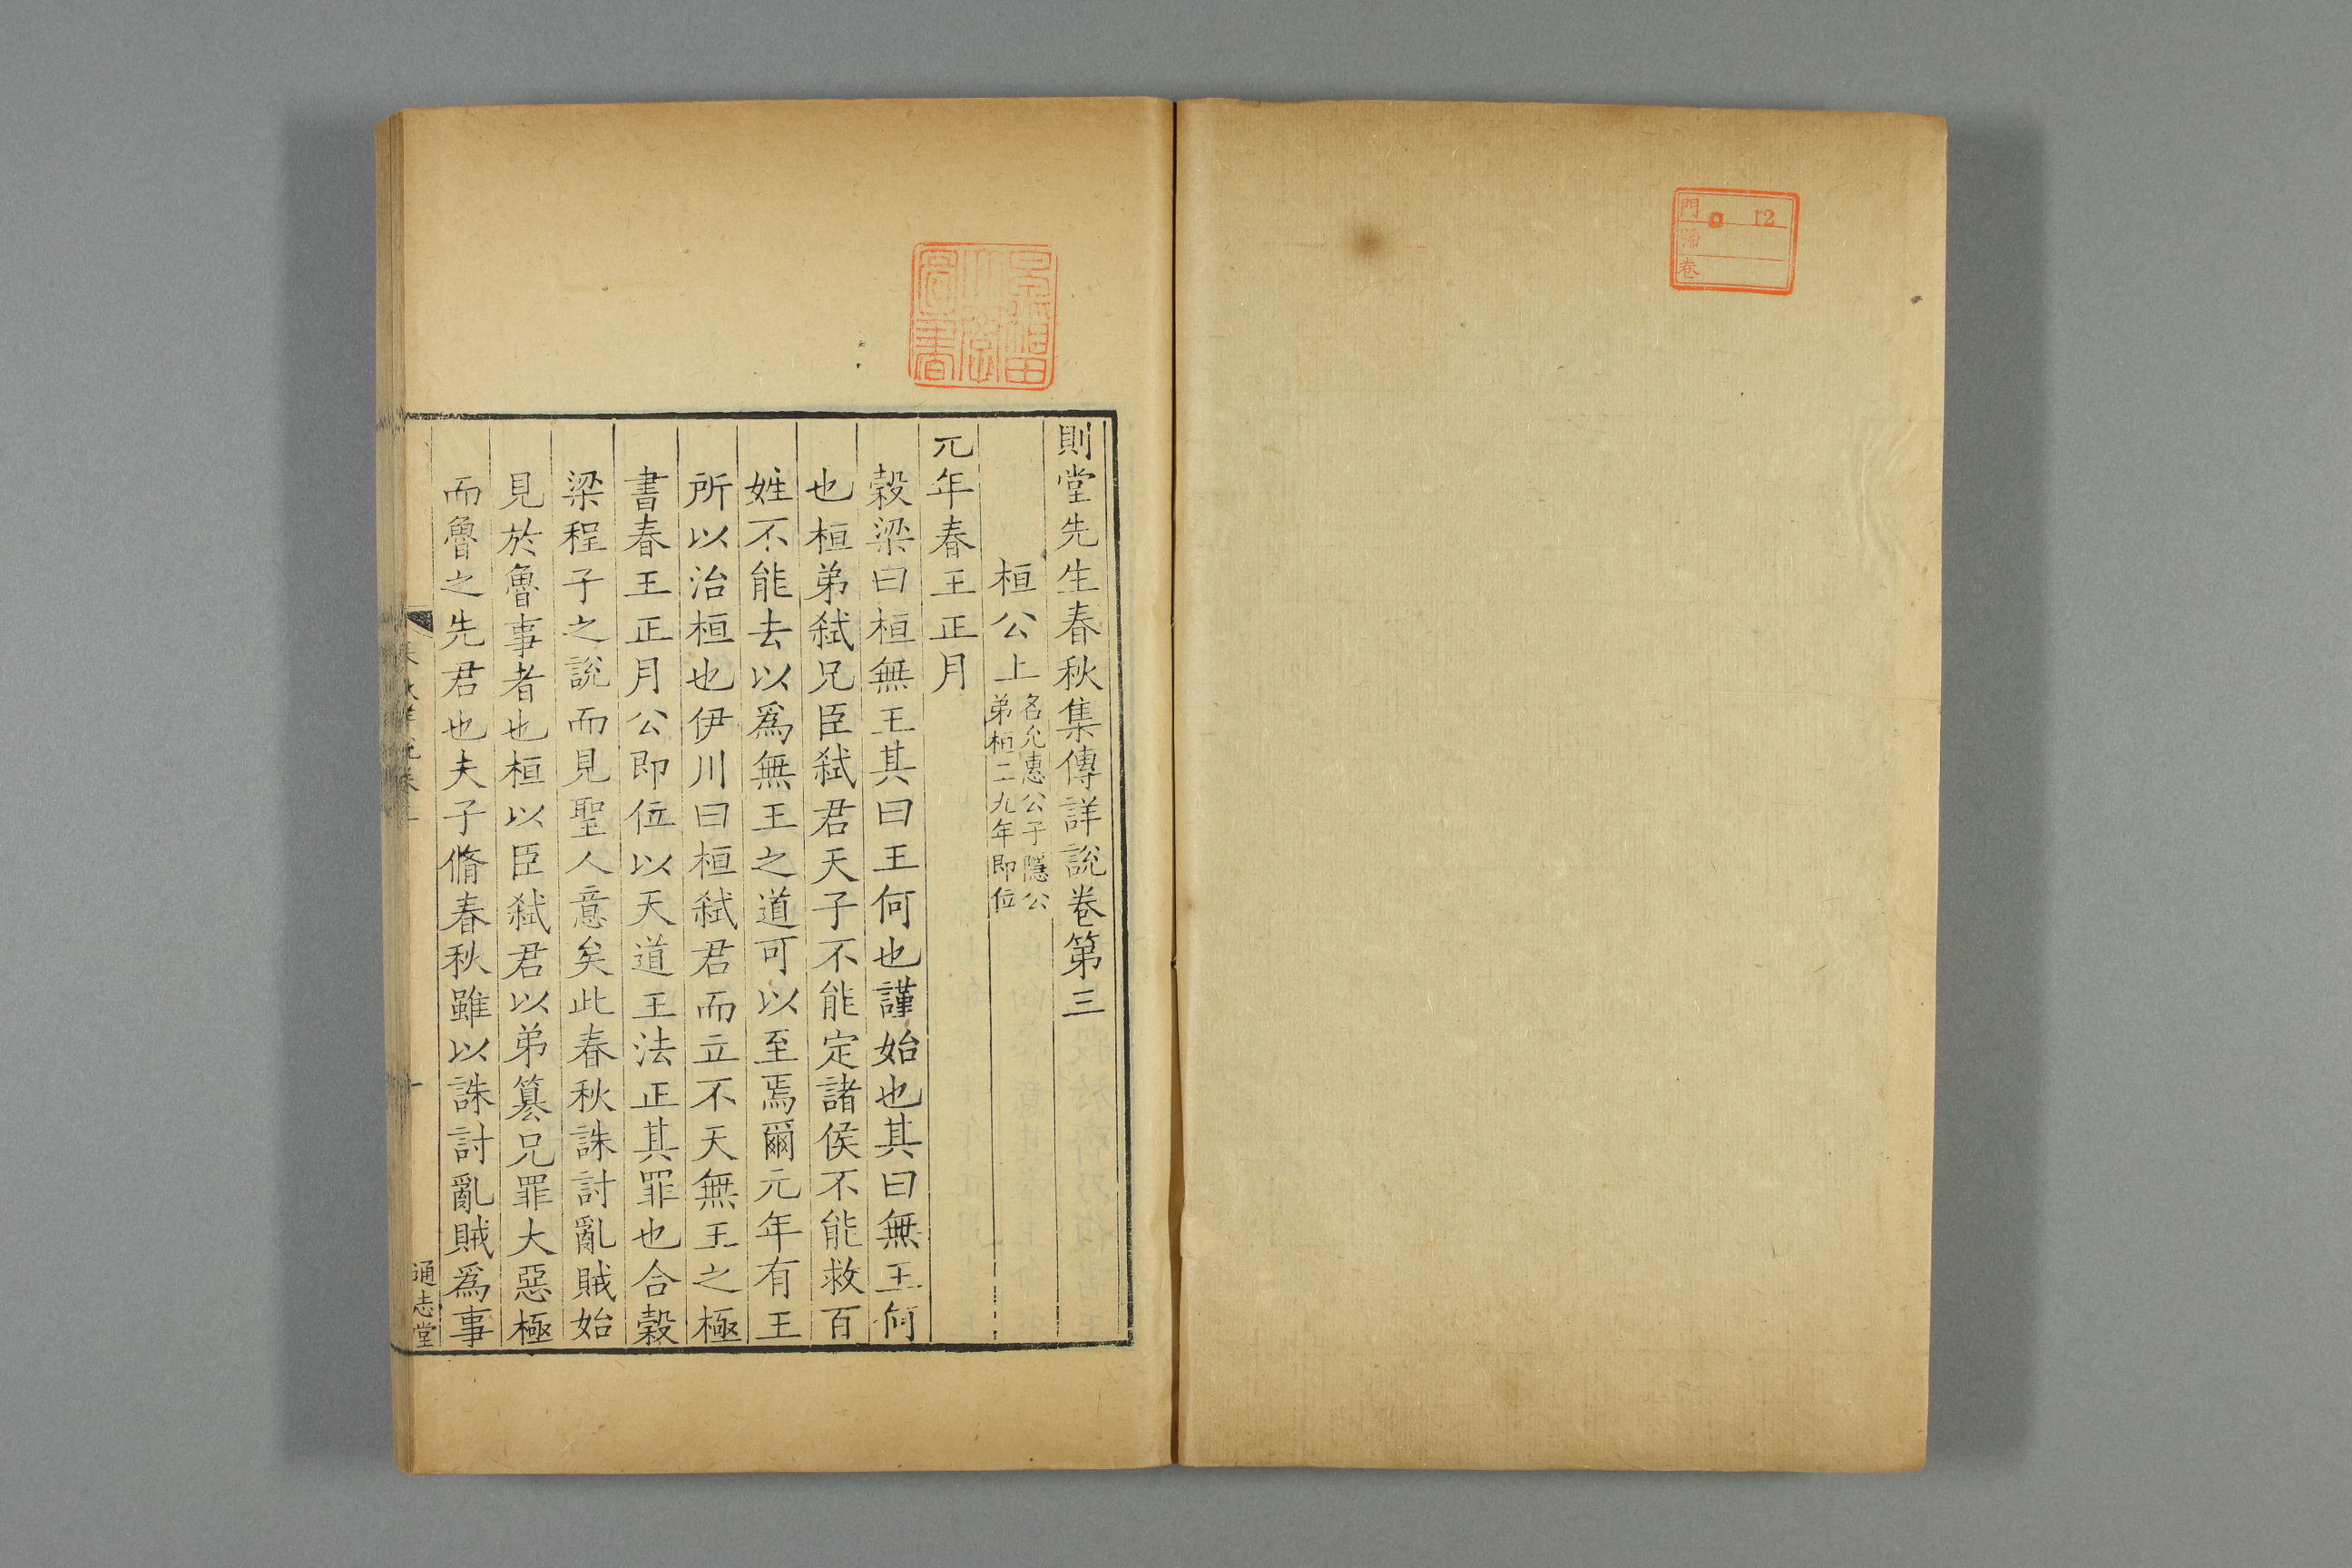 門 12
號
卷
早稲田
大學
圖書
則堂先生春秋集傳詳說卷第三
桓公上
名允惠公子隱公
弟桓二九年即位
元年春王正月
穀梁曰桓無王其曰王何也謹始也其曰無王何
也桓弟弑兄臣弑君天子不能定諸侯不能救百
姓不能去以爲無王之道可以至焉爾元年有王
所以治桓也伊川曰桓弑君而立不天無王之極
書春王正月公即位以天道王法正其罪也合穀
梁程子之說而見聖人意矣此春秋誅討亂賊始
見於魯事者也桓以臣弑君以弟簒兄罪大惡極
而魯之先君也夫子脩春秋雖以誅討亂賊爲事
通志堂